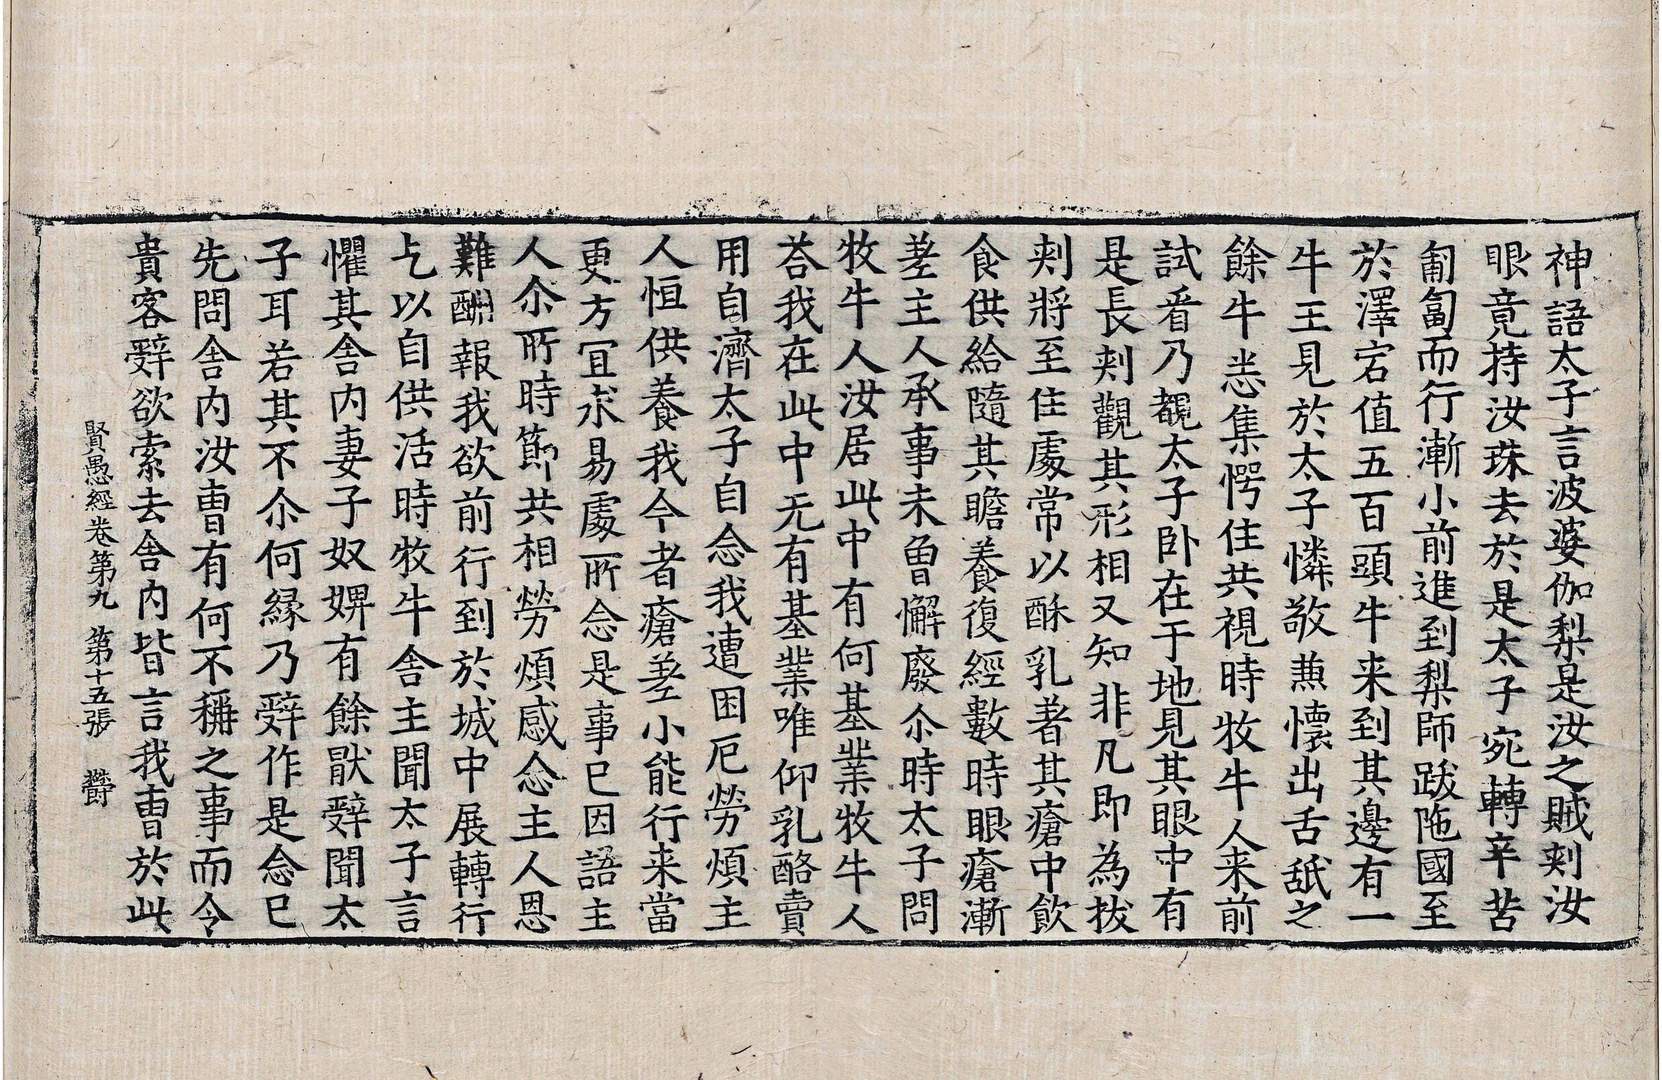 神語太子言波婆伽梨是汝之賊刾汝
眼竟持汝珠去於是太子宛轉辛苦
匍匐而行漸小前進到梨師跋陁國至
於澤宕值五百頭牛来到其邊有一
牛王見於太子憐敬兼懷出舌舐之
餘牛悉集愕住共視時牧牛人来前
試看乃覩太子卧在于地見其眼中有
是長刾觀其形相又知非凡即為拔
刾將至住處常以酥乳著其瘡中飲
食供給隨其瞻養復經數時眼瘡漸
差主人承事未曾懈廢尒時太子問
牧牛人汝居此中有何基業牧牛人
荅我在此中无有基業唯仰乳酪賣
用自濟太子自念我遭困厄勞煩主
人恒供養我今者瘡差小能行来當
更方冝求易處所念是事已因語主
人尒所時節共相勞煩感念主人恩
難酬報我欲前行到於城中展轉行
乞以自供活時牧牛舍主聞太子言
懼其舍内妻子奴婢有餘猒辤聞太
子耳若其不尒何縁乃辤作是念已
先問舍内汝曹有何不稱之事而令
貴客辤欲索去舍内皆言我曹於此
賢愚經卷第九 第十五張 欝